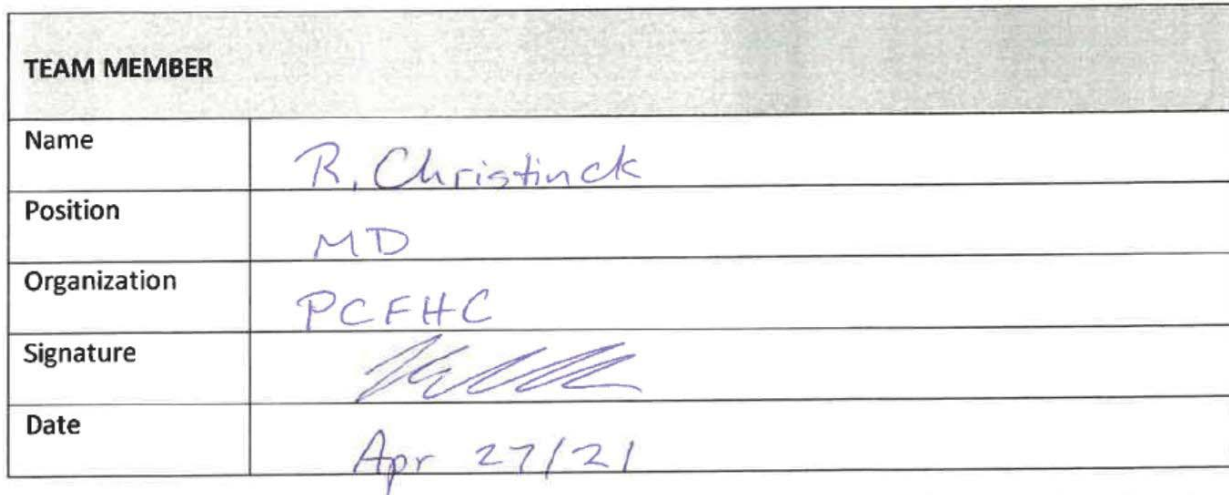 TEAM MEMBER
Name R. Christinck
Position MD
Organization PCFHC
Signature
Date Apr 27/21